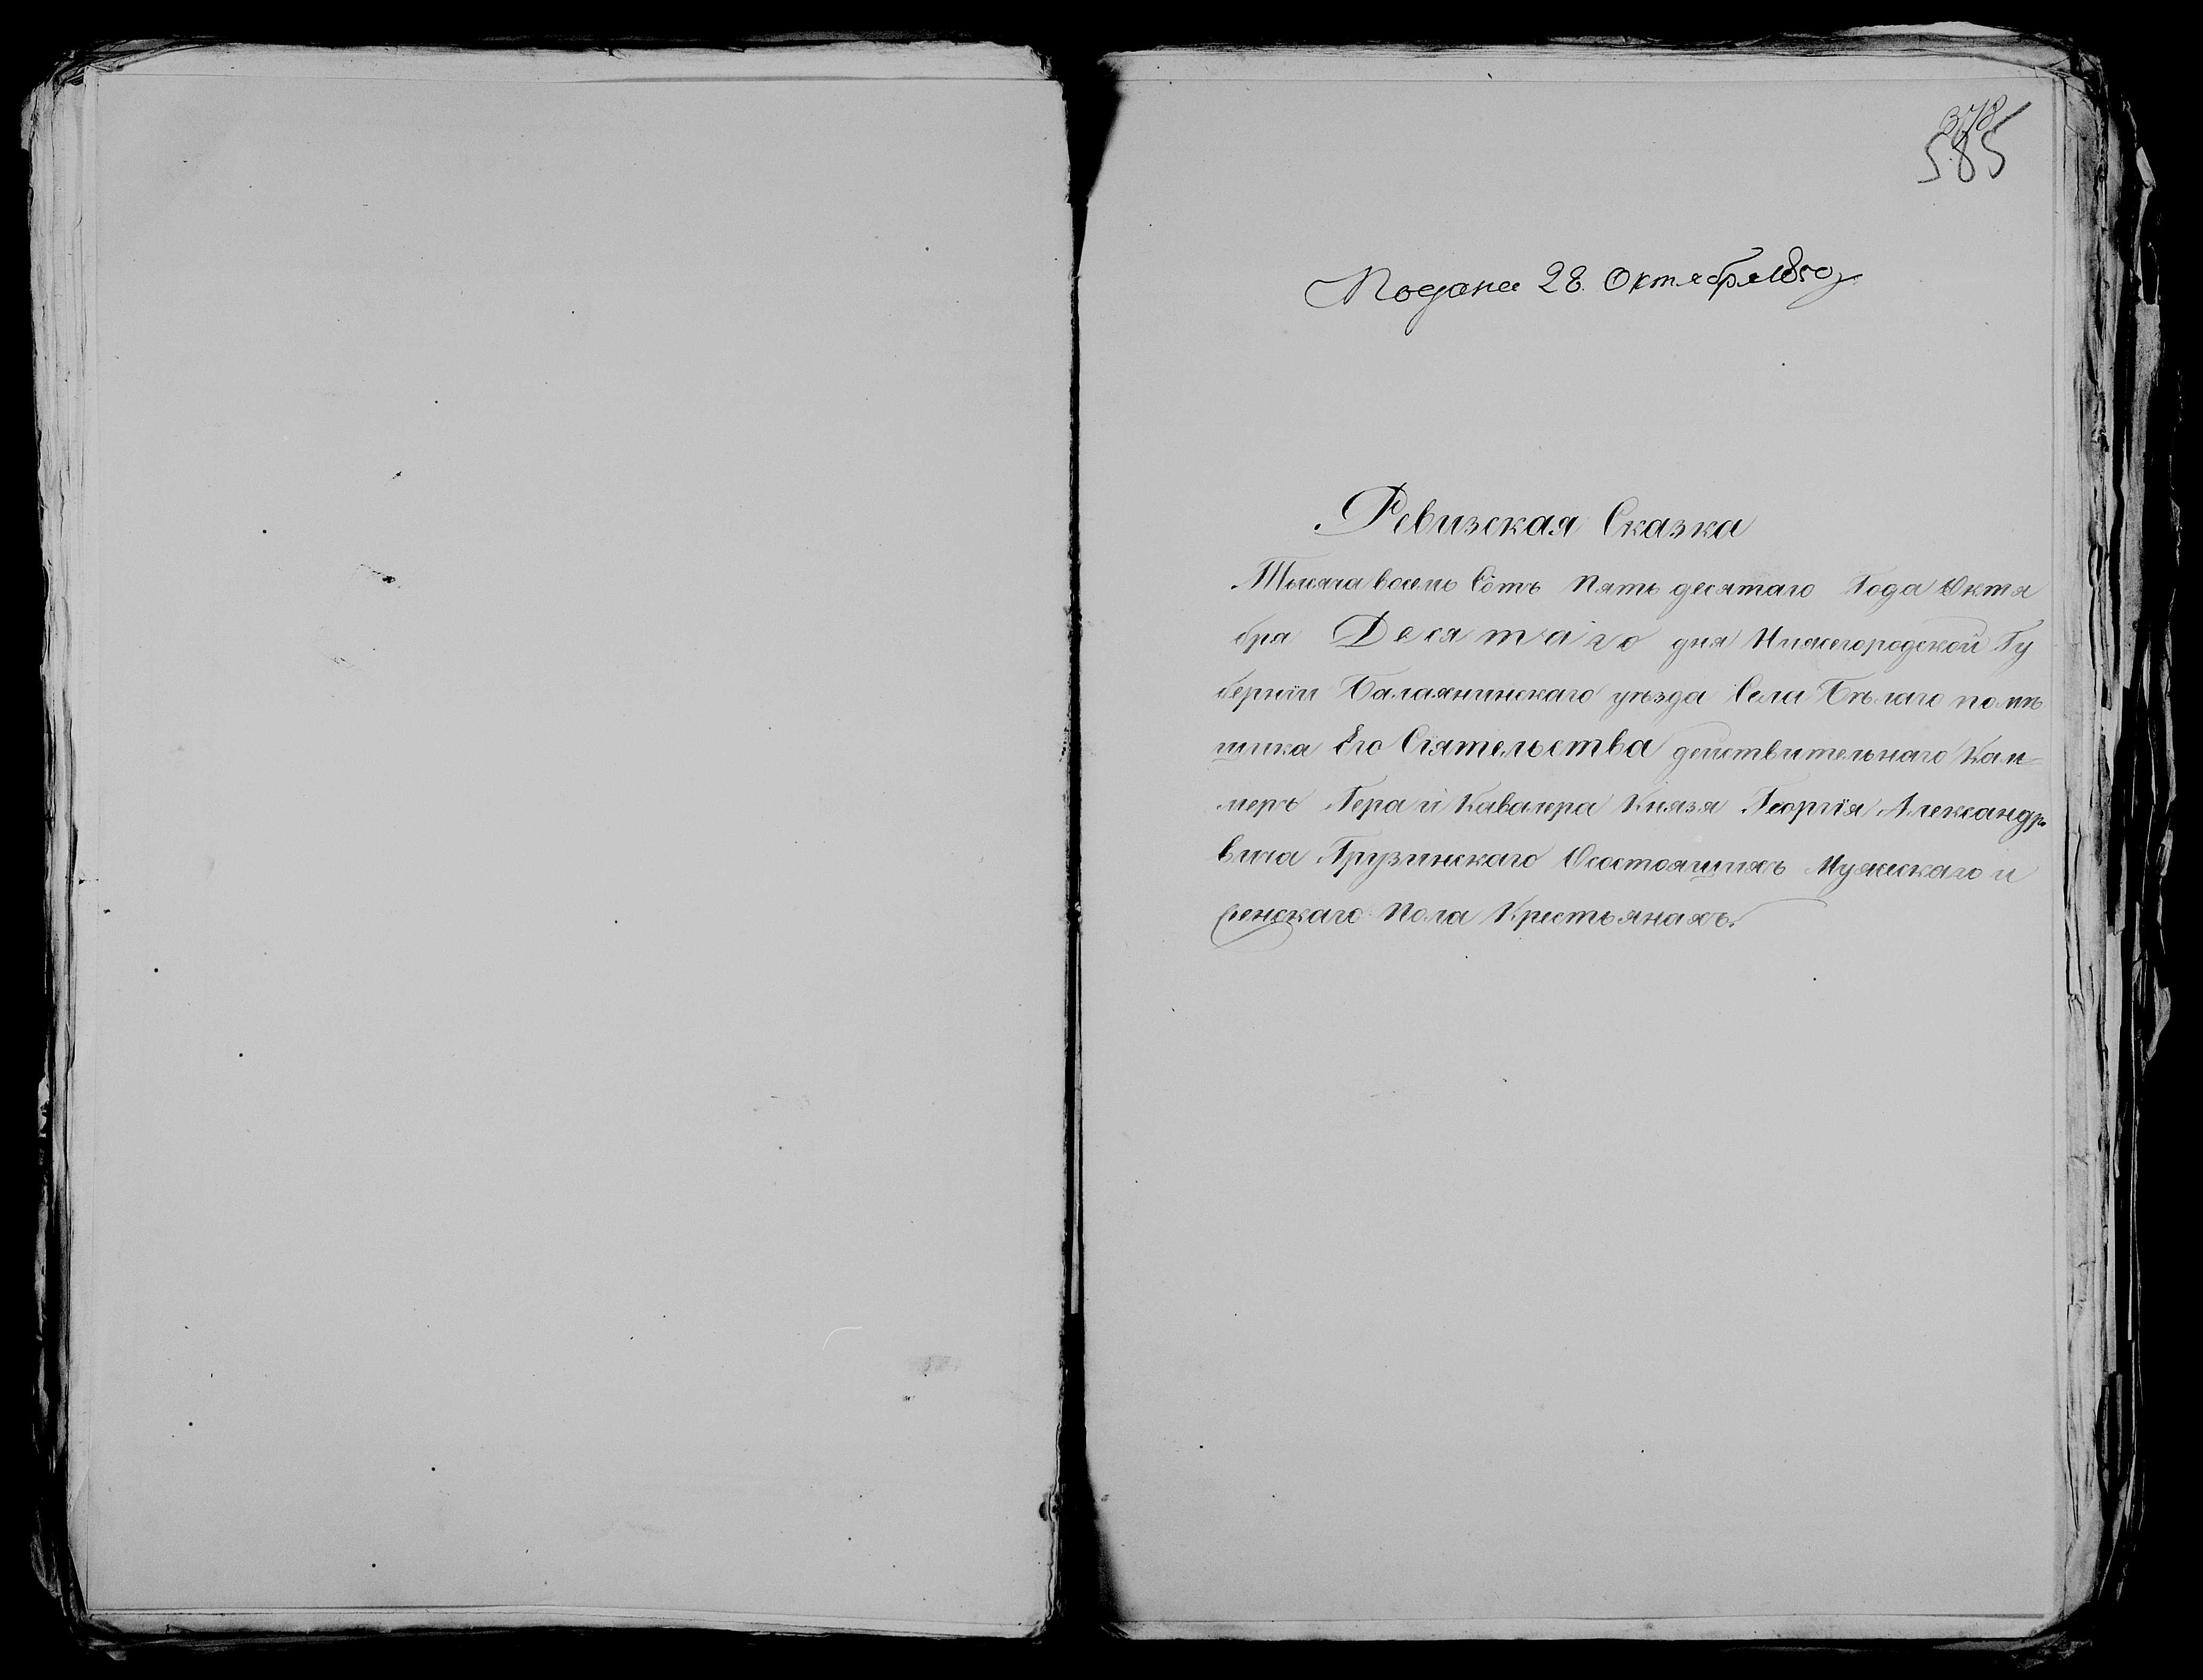 378
585
Подана 28. Октября 1850 г
Ревизская Сказка
Тысяча восемь Сотъ Пять десятаго Года Октя
бря Десятаго дня Нижегородской Гу
бернiи Балахнинскаго уѣзда Села Бѣлаго помѣ
щика Его Сiятельства действительнаго Кам=
меръ Гера и Кавалера Князя Георгiя Александро
вича Грузинскаго Осостоящихъ Мужскаго и
женскаго Пола Крестьянахъ.